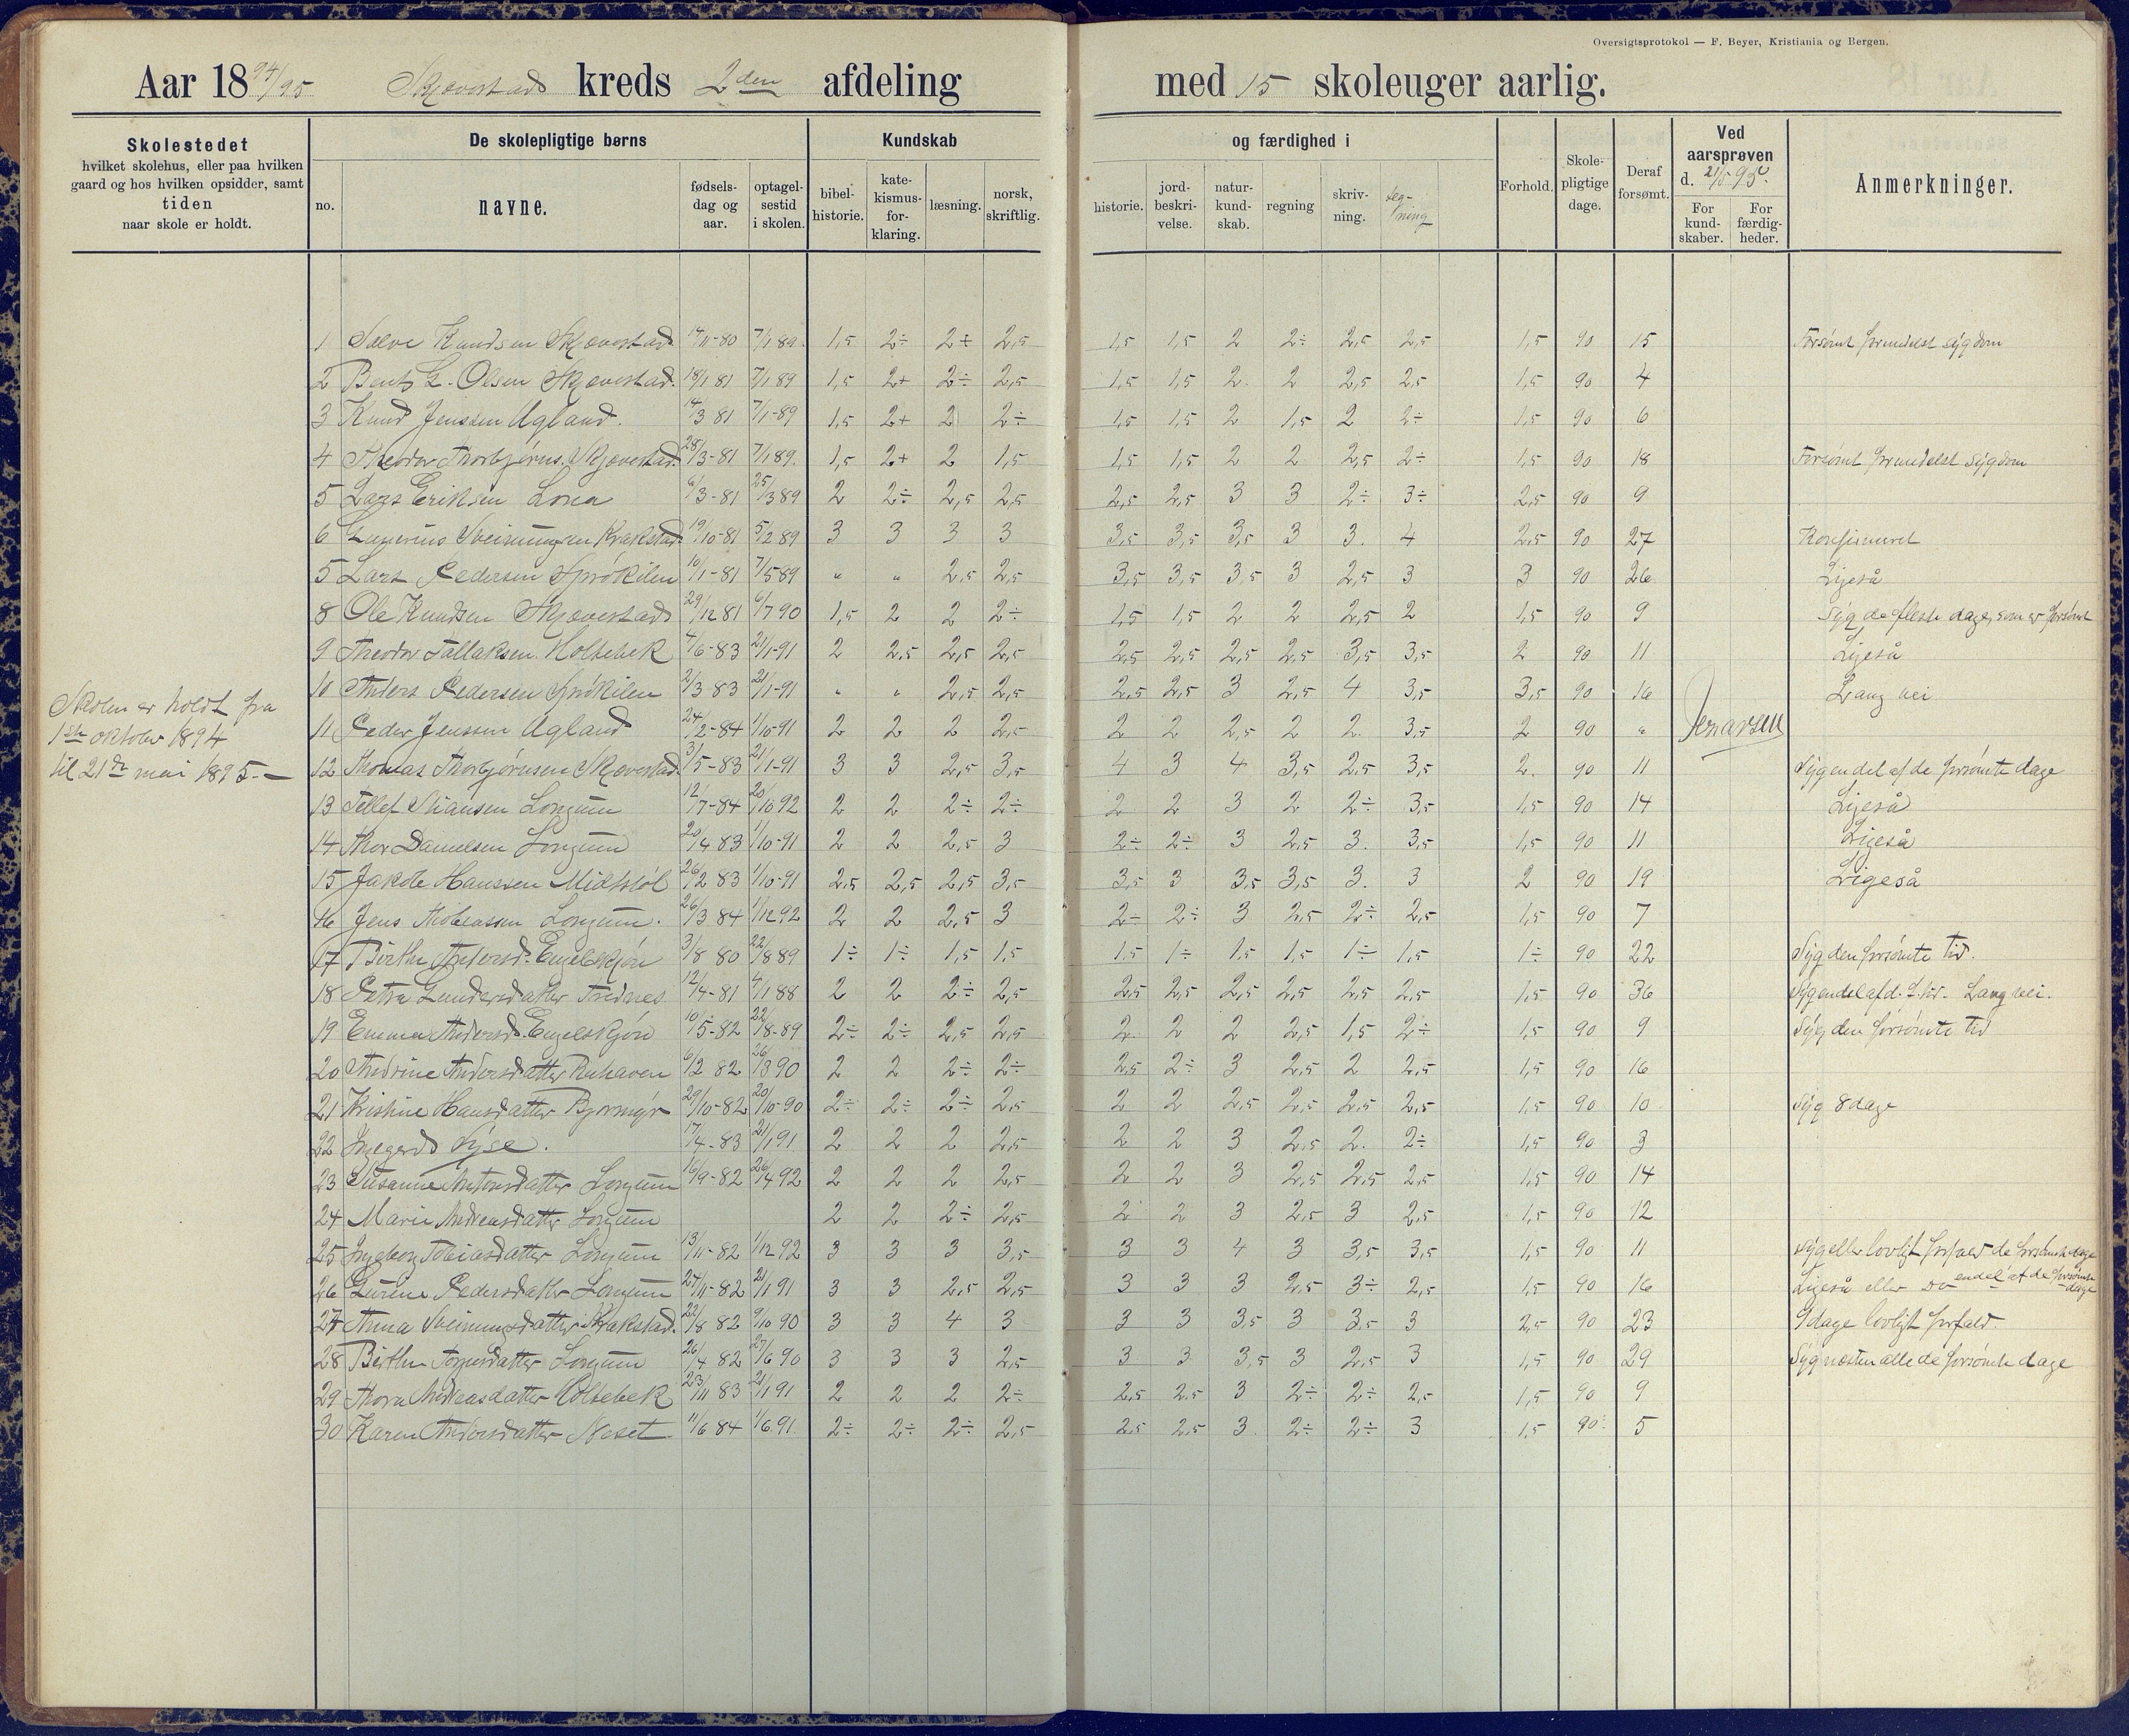 Oversigtsprotokol — F. Beyer, Kristiania og Bergen.
Aar 1894/95 Skjævestads kreds 2den afdeling med 15 skoleuger aarlig.
Skolestedet
hvilket skolehus, eller paa hvilken
gaard og hos hvilken opsidder, samt
tiden
naar skole er holdt.
De skolepligtige børns
no. navne. fødsels-dag og aar. optagel-sestid i skolen.
Kundskab og færdighed i
bibel-historie. kate-kismus-for-klaring. læsning. norsk, skriftlig. historie. jord-beskri-velse. natur-kund-skab. regning skriv-ning. teg-ning
Forhold. Skole-pligtige dage. Deraf forsømt.
Ved aarsprøven d. 21/5 95.
For kund-skaber. For færdig-heder.
Anmerkninger.
Skolen er holdt fra
1ste oktober 1894
til 21de mai 1895.—
1 Salve Knudsen Skjævestad 14/11-80 7/1 89. 1,5 2÷ 2+ 2,5 1,5 1,5 2 2÷ 2,5 2,5 1,5 90 15 Forsømt formedelst sygdom
2 Bent G. Olsen Skjævestad. 18/1 81 7/1 89 1,5 2+ 2÷ 2,5 1,5 1,5 2 2 2,5 2,5 1,5 90 4
3 Knud Jenssen Ugland. 14/3 81 7/1-89 1,5 2+ 2 2÷ 1,5 1,5 2 1,5 2 2÷ 1,5 90 6
4 Theodor Thorbjørns. Skjævestad. 28/3-81 7/1 89. 1,5 2+ 2 1,5 1,5 1,5 2 2 2,5 2÷ 1,5 90 18 Forsømt formedelst sygdom
5 Lars Eriksen Lona 6/3-81 25/3 89 2 2÷ 2,5 2,5 2,5 2,5 3 3 2÷ 3÷ 2,5 90 9
6 Sveinungsen Krakstad. 19/10-81 5/2 89 3 3 3 3 3,5 3,5 3,5 3 3. 4 2,5 90 27 Konfirmeret
5 Lars Pedersen Sprøkilen 10/1-81 7/5 89 " " 2,5 2,5 3,5 3,5 3,5 3 2,5 3 3 90 26 Ligeså
8 Ole Knudsen Skjævestad 29/12 81 6/7 90 1,5 2 2 2÷ 1,5 1,5 2 2 2,5 2 1,5 90 9 Syg de fleste dage, som er forsømt
9 Theodor Tallaksen Holtebek 4/6-83 21/1-91 2 2,5 2,5 2,5 2,5 2,5 2,5 2,5 3,5 3,5 2 90 11 Ligeså
10 Anders Pedersen Sprøkilen 2/3 83 21/1-91 " " 2,5 2,5 2,5 2,5 3 2,5 4 3,5 3,5 90 16 Lang vei
11 Peder Jenssen Ugland 24/2-84 1/10-91 2 2 2 2,5 2 2 2,5 2 2. 3,5 2 90 "
12 Thomas Thorbjørnsen Skjævestad. 31/5-83 21/1-91 3 3 2,5 3,5 4 3 4 3,5 2,5 3,5 2. 90 11 Syg endel af de forsømte dage
13 Tellef Stiansen Longum 12/7-84 20/10 92 2 2 2÷ 2÷ 2 2 3 2 2÷ 3,5 1,5 90 14 Ligeså
14 Thor Danielsen Longum 20/4 83 1/10-91 2 2 2,5 3 2÷ 2÷ 3 2,5 3. 3,5 1,5 90 11 Ligeså
15 Jakob Hanssen Midtstøl 26/2 83 1/10-91 2,5 2,5 2,5 3,5 3,5 3 3,5 3,5 3. 3 2 90 19 Ligeså
16 Jens Tobiassen Longum. 26/3 84 1/12 92 2 2 2,5 3 2÷ 2÷ 3 2,5 2÷ 2,5 1,5 90 7
17 Birthe Andersd. Engelskjøn 3/8 80 22/8 89 1÷ 1÷ 1,5 1,5 1,5 1÷ 1,5 1,5 1÷ 1,5 1÷ 90 22 Syg den forsømte tid.
18 Petra Gundersdatter Frednes 12/4-81 4/1 88 2 2 2÷ 2,5 2,5 2,5 2,5 2,5 2,5 2,5 1,5 90 36 Syg endel af d. f. tid. Lang vei.
19 Emma Andersd. Engelskjøn 10/5-82 22/8-89 2÷ 2÷ 2,5 2,5 2 2 2 2,5 1,5 2÷ 1,5 90 9 Syg den forsømte tid
20 Andrine Andersdatter 6/2 82 26/3 90 2 2 2÷ 2÷ 2,5 2÷ 3 2,5 2 2,5 1,5 90 16
21 Kristine Hansdatter Bjormyr 29/10-82 20/10-90 2÷ 2÷ 2÷ 2,5 2 2 2,5 2,5 2,5 2,5 1,5 90 10 Syg 8 dage
22 Ingegerd Lyse. 17/4-83 21/1 91 2 2 2 2,5 2 2 3 2,5 2. 2÷ 1,5 90 3
23 Susanne Antonsdatter Longum 16/9-82 26/4 92 2 2 2 2,5 2 2 3 2,5 2,5 2,5 1,5 90 14
24 Marie Andreasdatter Longum 2 2 2÷ 2,5 2 2 3 2,5 3 2,5 1,5 90 12
25 Ingeborg Tobiasdatter Longum 13/11-82 1/12 92 3 3 3 3,5 3 3 4 3 3,5 3,5 1,5 90 11 Syg eller lovligt forfald de forsømte dage
26 Gurine Pedersdatter Longum 27/11-82 21/1 91 3 3 2,5 2,5 3 3 3 2,5 3÷ 2,5 1,5 90 16 Ligeså eller do endel af de forsømte dage
27 Anna Sveinungsdatter Krakstad. 22/8 82 9/10 90 3 3 4 3 3 3 3,5 3 3,5 3 2,5 90 23 9 dage lovligt forfald.
28 Birthe Torjusdatter Longum 26/4 82 27/6 90 3 3 3 2,5 3 3 3,5 3 2,5 3 1,5 90 29 Syg næsten alle de forsømte dage
29 Thora Andreasdatter Holtebek 23/11 83 21/1 91 2 2 2 2÷ 2,5 2,5 3 2÷ 2÷ 2,5 1,5 90 9
30 Karen Andersdatter Neset 11/6 84 1/6 91. 2÷ 2÷ 2÷ 2,5 2,5 2,5 3 2÷ 2÷ 3 1,5 90 5